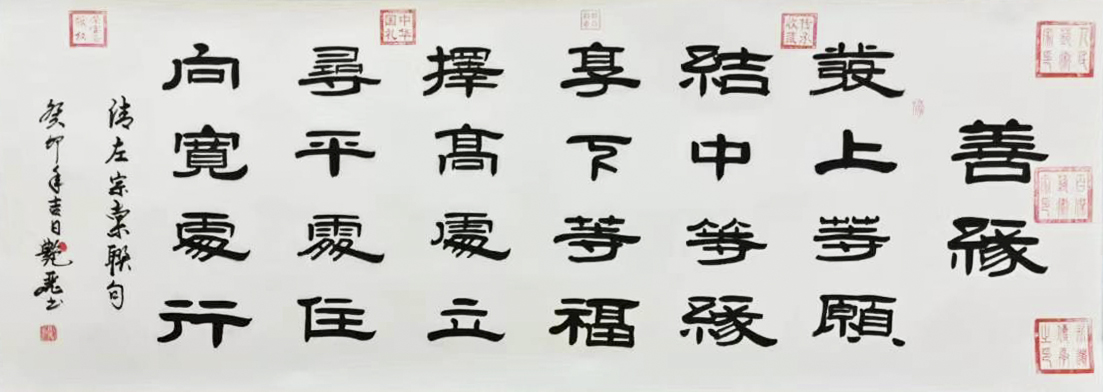 善緣
發上等願
結中等緣
享下等福
擇高處立
尋平處住
向寬處行
清左宗棠聯句
癸卯年吉日艷飛书
中华国礼